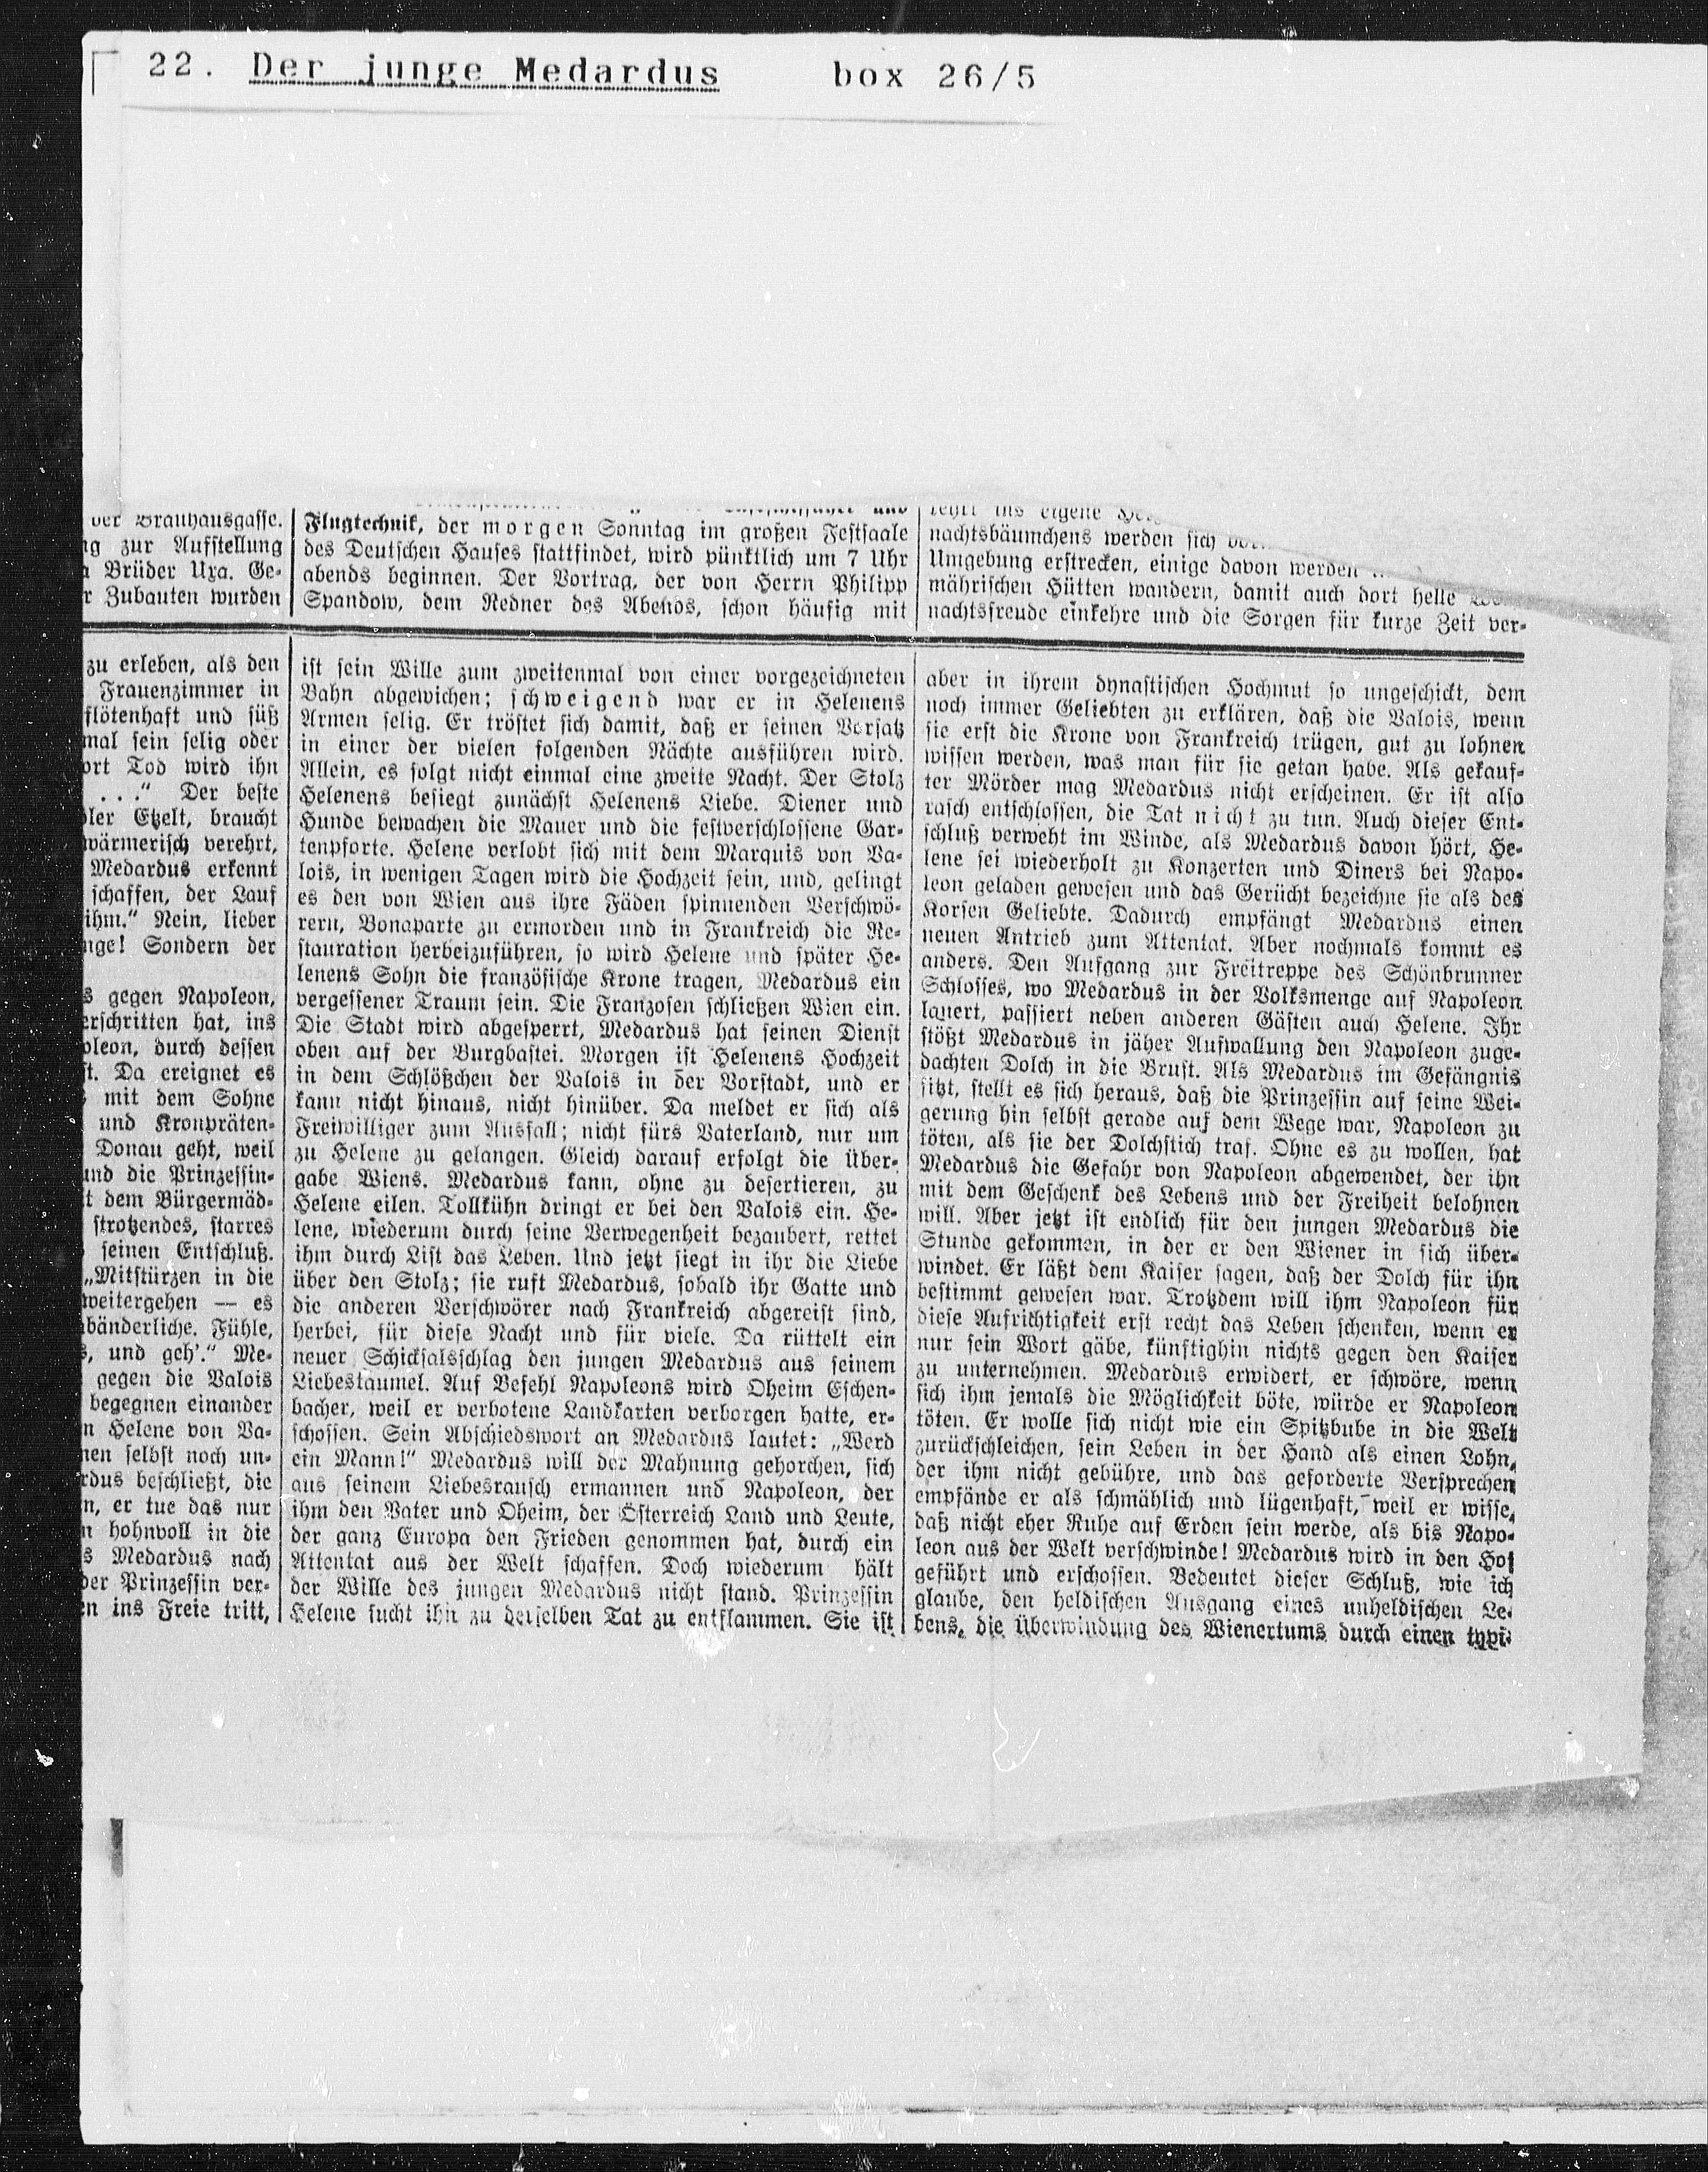 22. Der junge Medardus box 26/5
der Brauhausgasse.
zur Aufstellung
Brüder Uxa. Ge-
Zubauten wurden
Flugtechnik, der morgen Sonntag im großen Festsaale
des Deutschen Hauses stattfindet, wird pünktlich um 7 Uhr
abends beginnen. Der Vortrag, der von Herrn Philipp
Spandow, dem Redner des Abends, schon häufig mit
kehrt ins eigene
nachtsbäumchens werden sich
Umgebung erstrecken, einige davon werden
mährischen Hütten wandern, damit auch dort helle
nachtsfreude einkehre und die Sorgen für kurze Zeit ver-
zu erleben, als den
Frauenzimmer in
flötenhaft und süß
mal sein selig oder
ort Tod wird ihn
. . .“ Der beste
Etzelt, braucht
wärmerisch verehrt,
Medardus erkennt
schaffen, der Lauf
ihm.“ Nein, lieber
nge! Sondern der
s gegen Napoleon,
erschritten hat, ins
oleon, durch dessen
st. Da ereignet es
mit dem Sohne
und Kronpräten-
Donau geht, weil
und die Prinzessin-
t dem Bürgermäd-
strotzendes, starres
seinen Entschluß.
„Mitstürzen in die
weitergehen — es
bänderliche. Fühle,
s, und geh’.“ Me-
gegen die Valois
begegnen einander
n Helene von Va-
nen selbst noch un-
rdus beschließt, die
n, er tue das nur
n hohnvoll in die
s Medardus nach
der Prinzessin ver-
en ins Freie tritt,
ist sein Wille zum zweitenmal von einer vorgezeichneten
Bahn abgewichen; schweigend war er in Helenens
Armen selig. Er tröstet sich damit, daß er seinen Vorsatz
in einer der vielen folgenden Nächte ausführen wird.
Allein, es folgt nicht einmal eine zweite Nacht. Der Stolz
Helenens besiegt zunächst Helenens Liebe. Diener und
Hunde bewachen die Mauer und die festverschlossene Gar-
tenpforte. Helene verlobt sich mit dem Marquis von Va-
lois, in wenigen Tagen wird die Hochzeit sein, und, gelingt
es den von Wien aus ihre Fäden spinnenden Verschwö-
rern, Bonaparte zu ermorden und in Frankreich die Re-
stauration herbeizuführen, so wird Helene und später He-
lenens Sohn die französische Krone tragen, Medardus ein
vergessener Traum sein. Die Franzosen schließen Wien ein.
Die Stadt wird abgesperrt, Medardus hat seinen Dienst
oben auf der Burgbastei. Morgen ist Helenens Hochzeit
in dem Schlößchen der Valois in der Vorstadt, und er
kann nicht hinaus, nicht hinüber. Da meldet er sich als
Freiwilliger zum Ausfall; nicht fürs Vaterland, nur um
zu Helene zu gelangen. Gleich darauf erfolgt die Über-
gabe Wiens. Medardus kann, ohne zu desertieren, zu
Helene eilen. Tollkühn dringt er bei den Valois ein. He-
lene, wiederum durch seine Verwegenheit bezaubert, rettet
ihm durch List das Leben. Und jetzt siegt in ihr die Liebe
über den Stolz; sie ruft Medardus, sobald ihr Gatte und
die anderen Verschwörer nach Frankreich abgereist sind,
herbei, für diese Nacht und für viele. Da rüttelt ein
neuer Schicksalsschlag den jungen Medardus aus seinem
Liebestaumel. Auf Befehl Napoleons wird Oheim Eschen-
bacher, weil er verbotene Landkarten verborgen hatte, er-
schossen. Sein Abschiedswort an Medardus lautet: „Werd
ein Mann!“ Medardus will der Mahnung gehorchen, sich
aus seinem Liebesrausch ermannen und Napoleon, der
ihm den Vater und Oheim, der Österreich Land und Leute,
der ganz Europa den Frieden genommen hat, durch ein
Attentat aus der Welt schaffen. Doch wiederum hält
der Wille des jungen Medardus nicht stand. Prinzessin
Helene sucht ihn zu derselben Tat zu entflammen. Sie ist
aber in ihrem dynastischen Hochmut so ungeschickt, dem
noch immer Geliebten zu erklären, daß die Valois, wenn
sie erst die Krone von Frankreich trügen, gut zu lohnen
wissen werden, was man für sie getan habe. Als gekauf-
ter Mörder mag Medardus nicht erscheinen. Er ist also
rasch entschlossen, die Tat nicht zu tun. Auch dieser Ent-
schluß verweht im Winde, als Medardus davon hört, He-
lene sei wiederholt zu Konzerten und Diners bei Napo-
leon geladen gewesen und das Gerücht bezeichne sie als des
Korsen Geliebte. Dadurch empfängt Medardus einen
neuen Antrieb zum Attentat. Aber nochmals kommt es
anders. Den Aufgang zur Freitreppe des Schönbrunner
Schlosses, wo Medardus in der Volksmenge auf Napoleon
lauert, passiert neben anderen Gästen auch Helene. Ihr
stößt Medardus in jäher Aufwallung den Napoleon zuge-
dachten Dolch in die Brust. Als Medardus im Gefängnis
sitzt, stellt es sich heraus, daß die Prinzessin auf seine Wei-
gerung hin selbst gerade auf dem Wege war, Napoleon zu
töten, als sie der Dolchstich traf. Ohne es zu wollen, hat
Medardus die Gefahr von Napoleon abgewendet, der ihn
mit dem Geschenk des Lebens und der Freiheit belohnen
will. Aber jetzt ist endlich für den jungen Medardus die
Stunde gekommen, in der er den Wiener in sich über-
windet. Er läßt dem Kaiser sagen, daß der Dolch für ihn
bestimmt gewesen war. Trotzdem will ihm Napoleon für
diese Aufrichtigkeit erst recht das Leben schenken, wenn er
nur sein Wort gäbe, künftighin nichts gegen den Kaiser
zu unternehmen. Medardus erwidert, er schwöre, wenn
sich ihm jemals die Möglichkeit böte, würde er Napoleon
töten. Er wolle sich nicht wie ein Spitzbube in die Welt
zurückschleichen, sein Leben in der Hand als einen Lohn,
der ihm nicht gebühre, und das geforderte Versprechen
empfände er als schmählich und lügenhaft, weil er wisse,
daß nicht eher Ruhe auf Erden sein werde, als bis Napo-
leon aus der Welt verschwinde! Medardus wird in den Hof
geführt und erschossen. Bedeutet dieser Schluß, wie ich
glaube, den heldischen Ausgang eines unheldischen Le-
bens, die Überwindung des Wienertums durch einen typi-